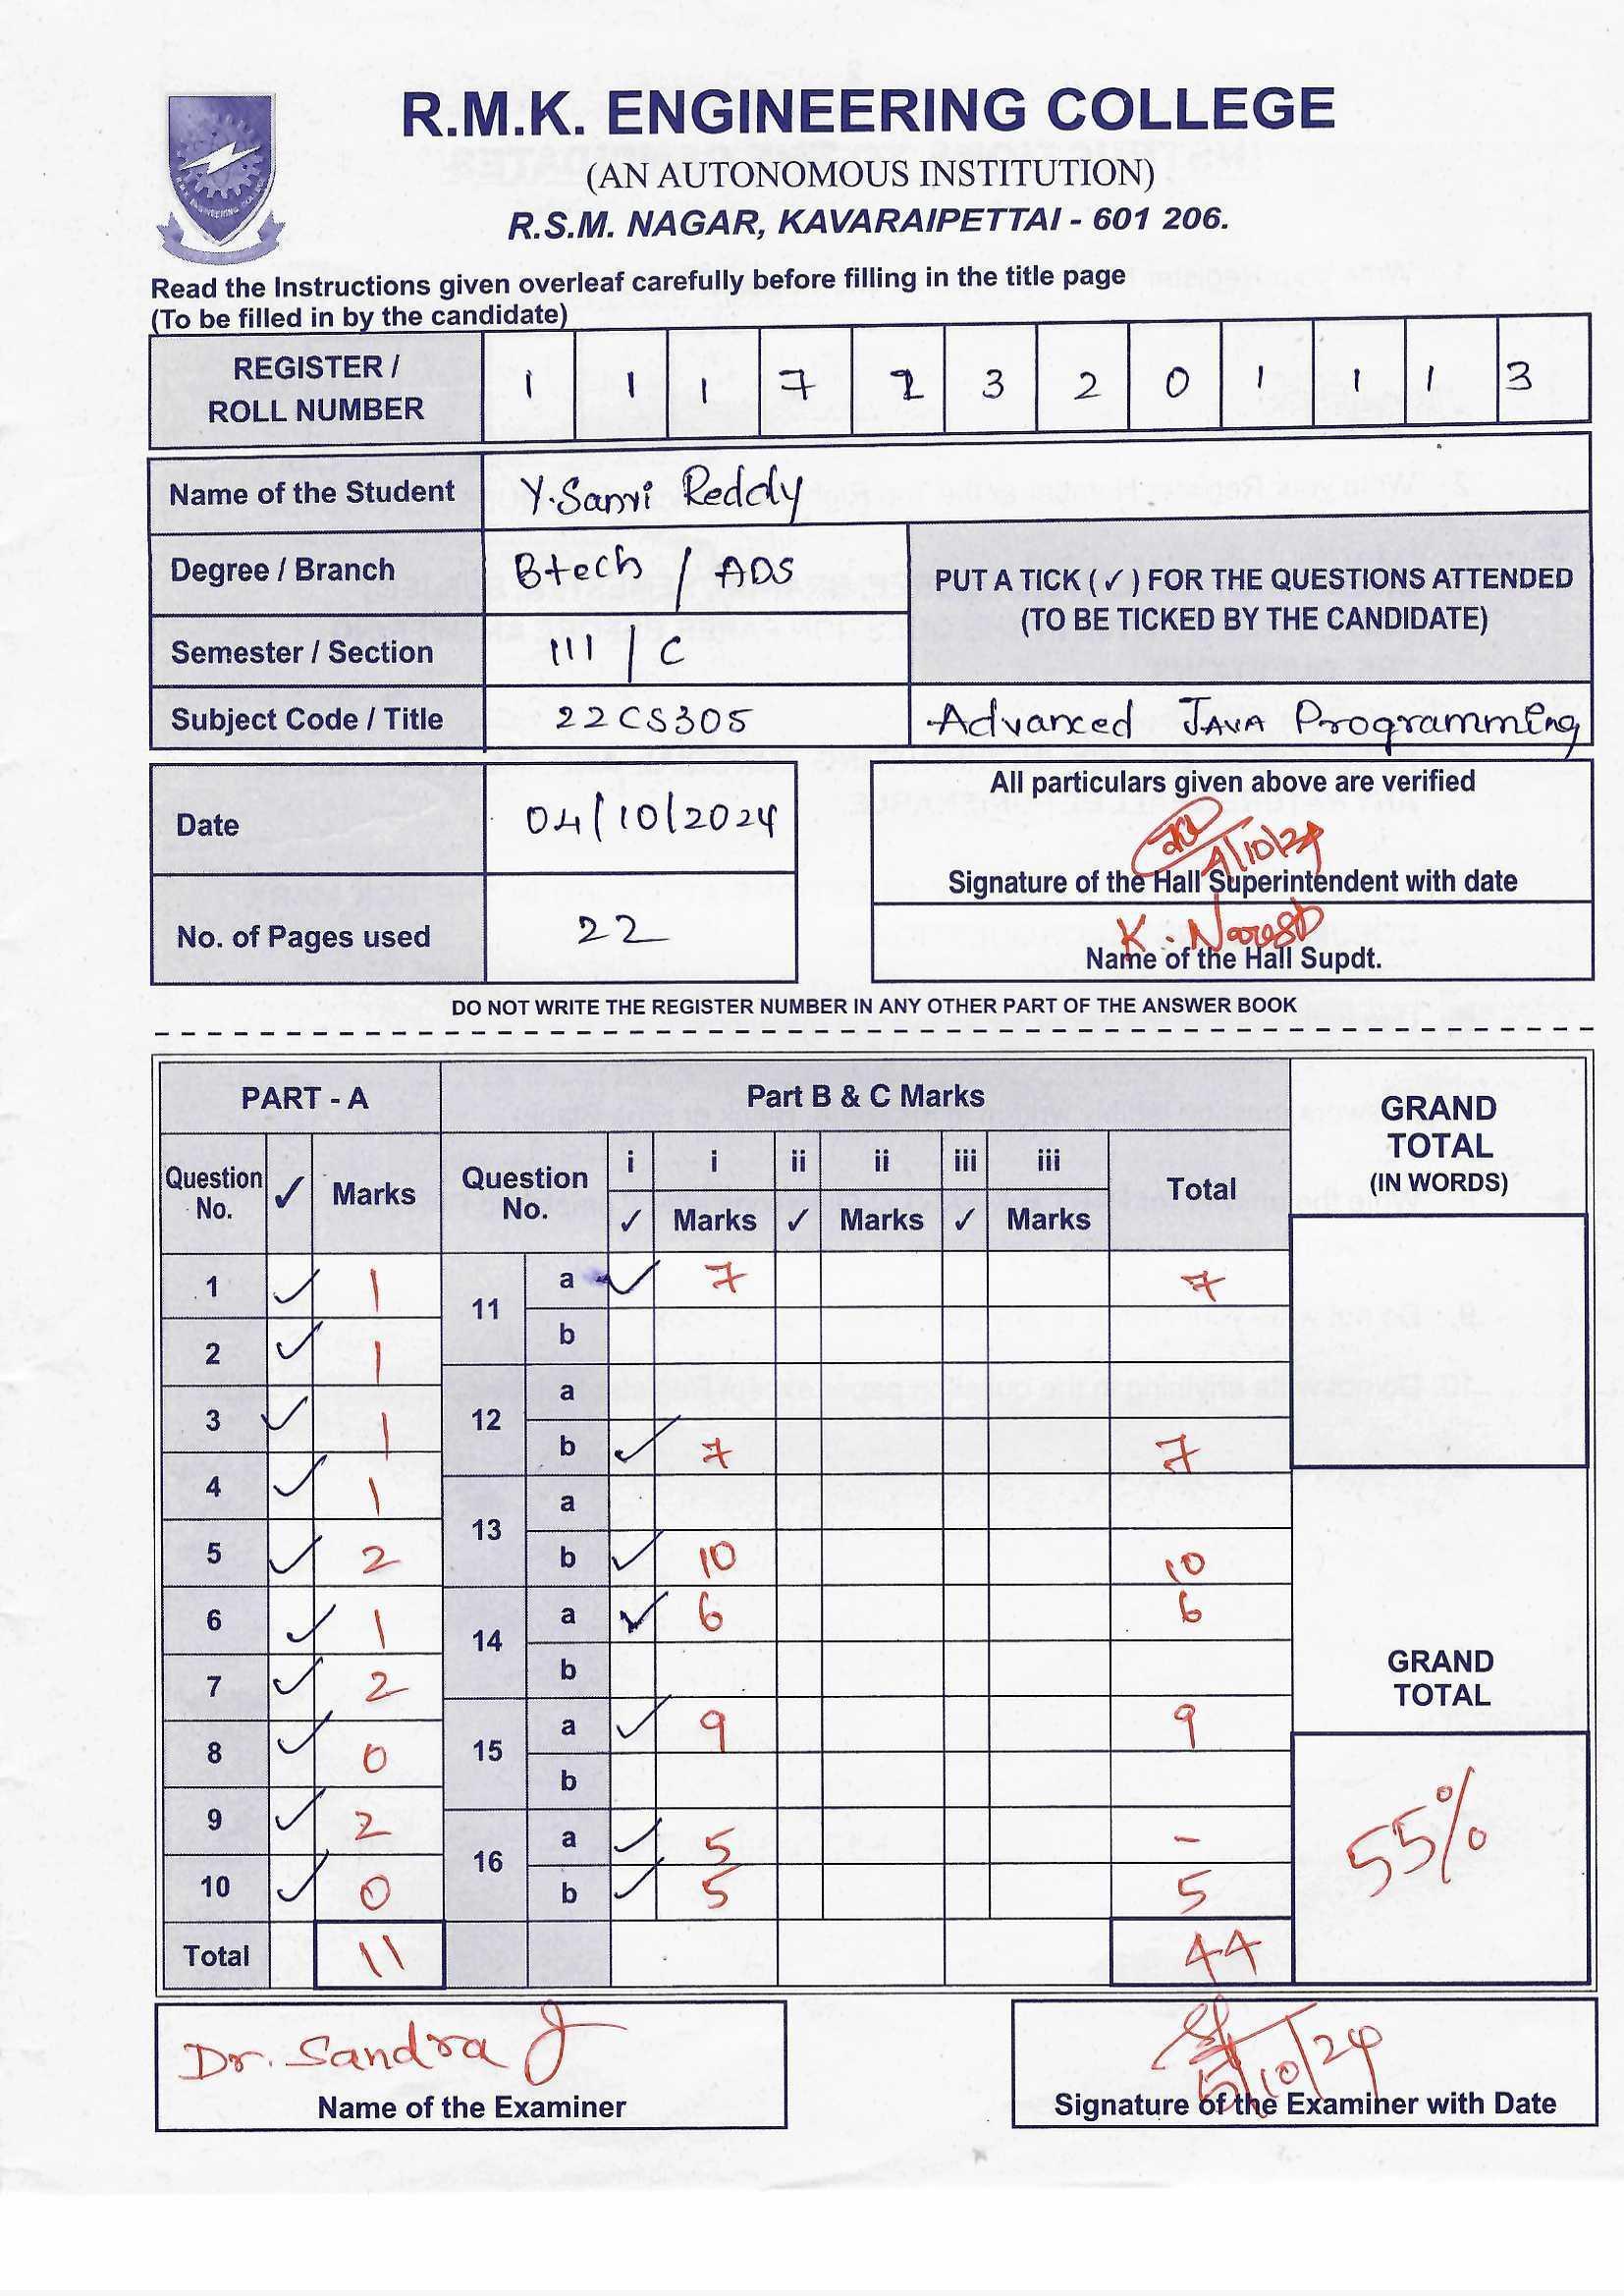 R.M.K. ENGINEERING COLLEGE
(AN AUTONOMOUS INSTITUTION)
R.S.M. NAGAR, KAVARAIPETTAI - 601 206.
Read the Instructions given overleaf carefully before filling in the title page
(To be filled in by the candidate)
REGISTER / ROLL NUMBER 1 1 1 7 2 3 2 0 1 1 1 3
Name of the Student Y. Reddy
Degree / Branch Btech / ADS
PUT A TICK ( ✓ ) FOR THE QUESTIONS ATTENDED
(TO BE TICKED BY THE CANDIDATE)
Semester / Section III / C
Subject Code / Title 22CS305 Advanced JAVA Programming
Date 04/10/2024
All particulars given above are verified
4/10/24
Signature of the Hall Superintendent with date
No. of Pages used 22
K. Naresh
Name of the Hall Supdt.
DO NOT WRITE THE REGISTER NUMBER IN ANY OTHER PART OF THE ANSWER BOOK
PART - A Part B & C Marks GRAND TOTAL (IN WORDS)
Question No. ✓ Marks Question No. i ✓ i Marks ii ✓ ii Marks iii ✓ iii Marks Total
1 ✓ 1
2 ✓ 1
3 ✓ 1
4 ✓ 1
5 ✓ 2
6 ✓ 1
7 ✓ 2
8 ✓ 0
9 ✓ 2
10 ✓ 0
Total 11
11 a ✓ 7 7
b
12 a
b ✓ 7 7
13 a
b ✓ 10 10
14 a ✓ 6 6
b
15 a ✓ 9 9
b
16 a ✓ 5 -
b ✓ 5 5
44
GRAND TOTAL
55%
Dr. Sandra J
Name of the Examiner
5/10/24
Signature of the Examiner with Date